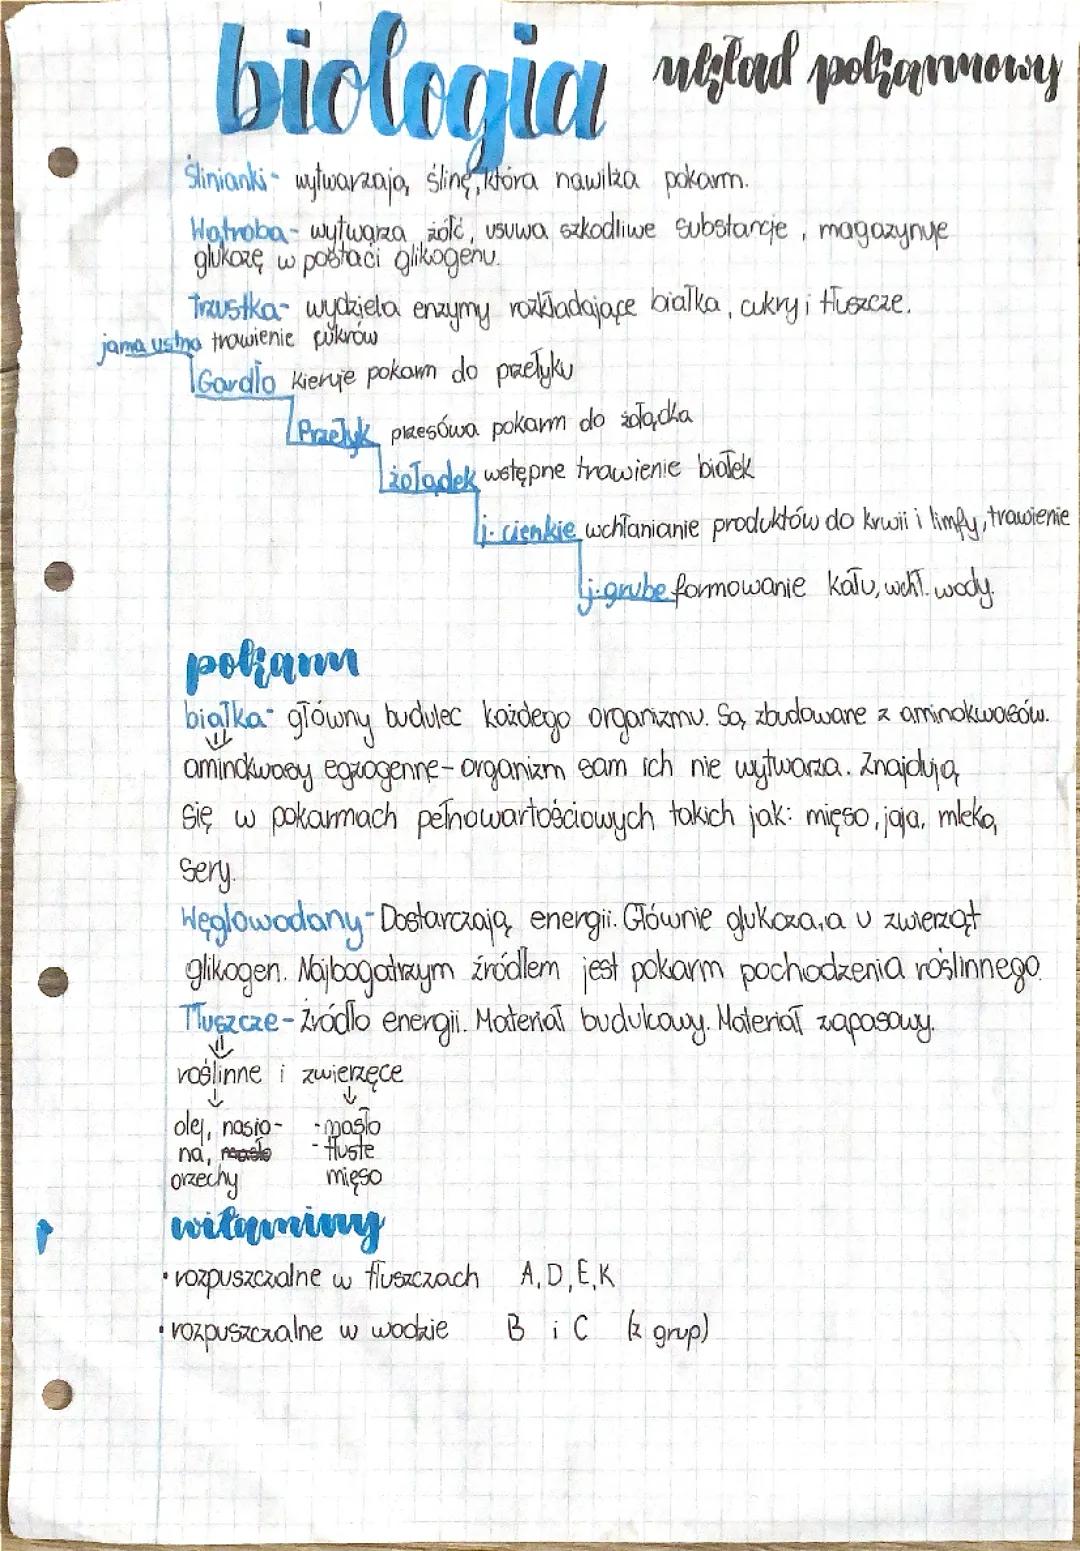 biologia układ pokarmowy
Ślinianki - wytwarzają ślinę, która nawilża pokarm.
Wątroba - wytwarza żółć, usuwa szkodliwe substancje, magazynuje
glukozę w postaci glikogenu.
Trzustka - wydziela enzymy rozkładające białka, cukry i tłuszcze.
jama ustna trawienie cukrów
Gardło kieruje pokarm do przełyku
Przełyk przesówa pokarm do żołądka
żołądek wstępne trawienie białek
j. cienkie wchłanianie produktów do krwii i limfy, trawienie
j. grube formowanie kału, wchł. wody.
pokarm
białka - główny budulec każdego organizmu. Są zbudowane z aminokwasów.
⇓
aminokwasy egzogenne - organizm sam ich nie wytwarza. Znajdują
się w pokarmach pełnowartościowych takich jak: mięso, jaja, mleko,
sery.
Węglowodany - Dostarczają energii. Głównie glukoza, a u zwierząt
glikogen. Najbogatrzym źródłem jest pokarm pochodzenia roślinnego.
Tłuszcze - Źródło energii. Materiał budulcowy. Materiał zapasowy.
⇓
roślinne i zwierzęce
↓ ↓
olej, nasio- - masło
na, masło - tłuste
orzechy mięso
witaminy
• rozpuszczalne w tłuszczach A, D, E, K
• rozpuszczalne w wodzie B i C (z grup)